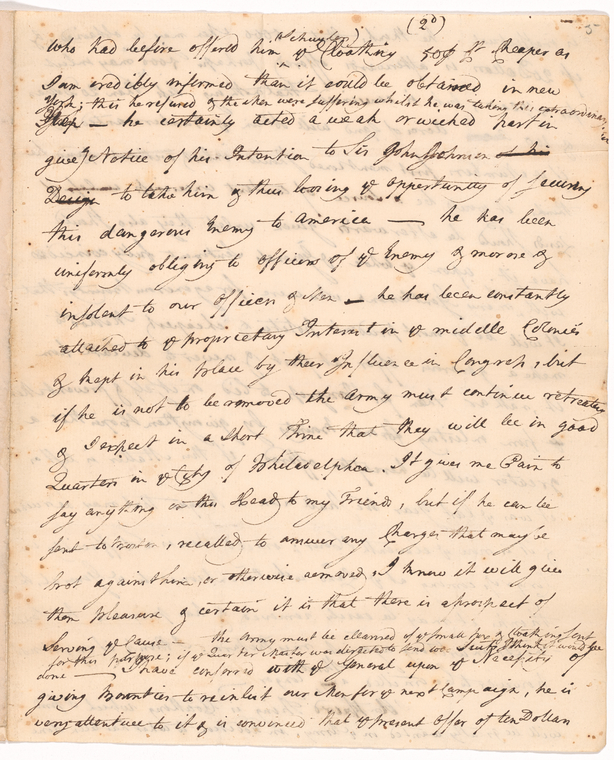 (2d)
who had before offered him (Schuyler) ye Cloathing 50 pr Ct Cheaper as
I am credibly informed than it could be obtained in new
York; this he refused & the men were suffering whilst he was taking this extraordinary
Step — he certainly acted a weak or wicked part in
giveg Notice of his Intention to Sir John Johnson of his
Design to take him & thus losing ye opportunity of securing
this dangerous Enemy to America — he has been
uniformly obliging to officers of ye Enemy & morose &
insolent to our officers & Men — he has been constantly
attached to ye Proprietary Interest in ye middle Colonies
& kept in his Place by their Influence in Congress, but
if he is not to be removed the Army must continue retreating
& I expect in a short Time that they will be in good
Quarters in ye City of Philadelphia. It gives me Pain to
say anything on this Head to my Friends, but if he can be
sent to Boston, recalled to answer any Charges that may be
brot against him, or otherwise removed, I know it will give
them pleasure & certain it is that there is a prospect of
Serving ye Cause — the Army must be cleansed of ye small pox & Cloathing sent
for this purpose; if ye Quarter Master was directed to send we I think it would be
done — I have conferred with ye General upon ye Necessity of
giving Bounties to reinlist our Men for ye next Campaign, he is
very attentive to it & is convinced that ye present offer of ten Dollars